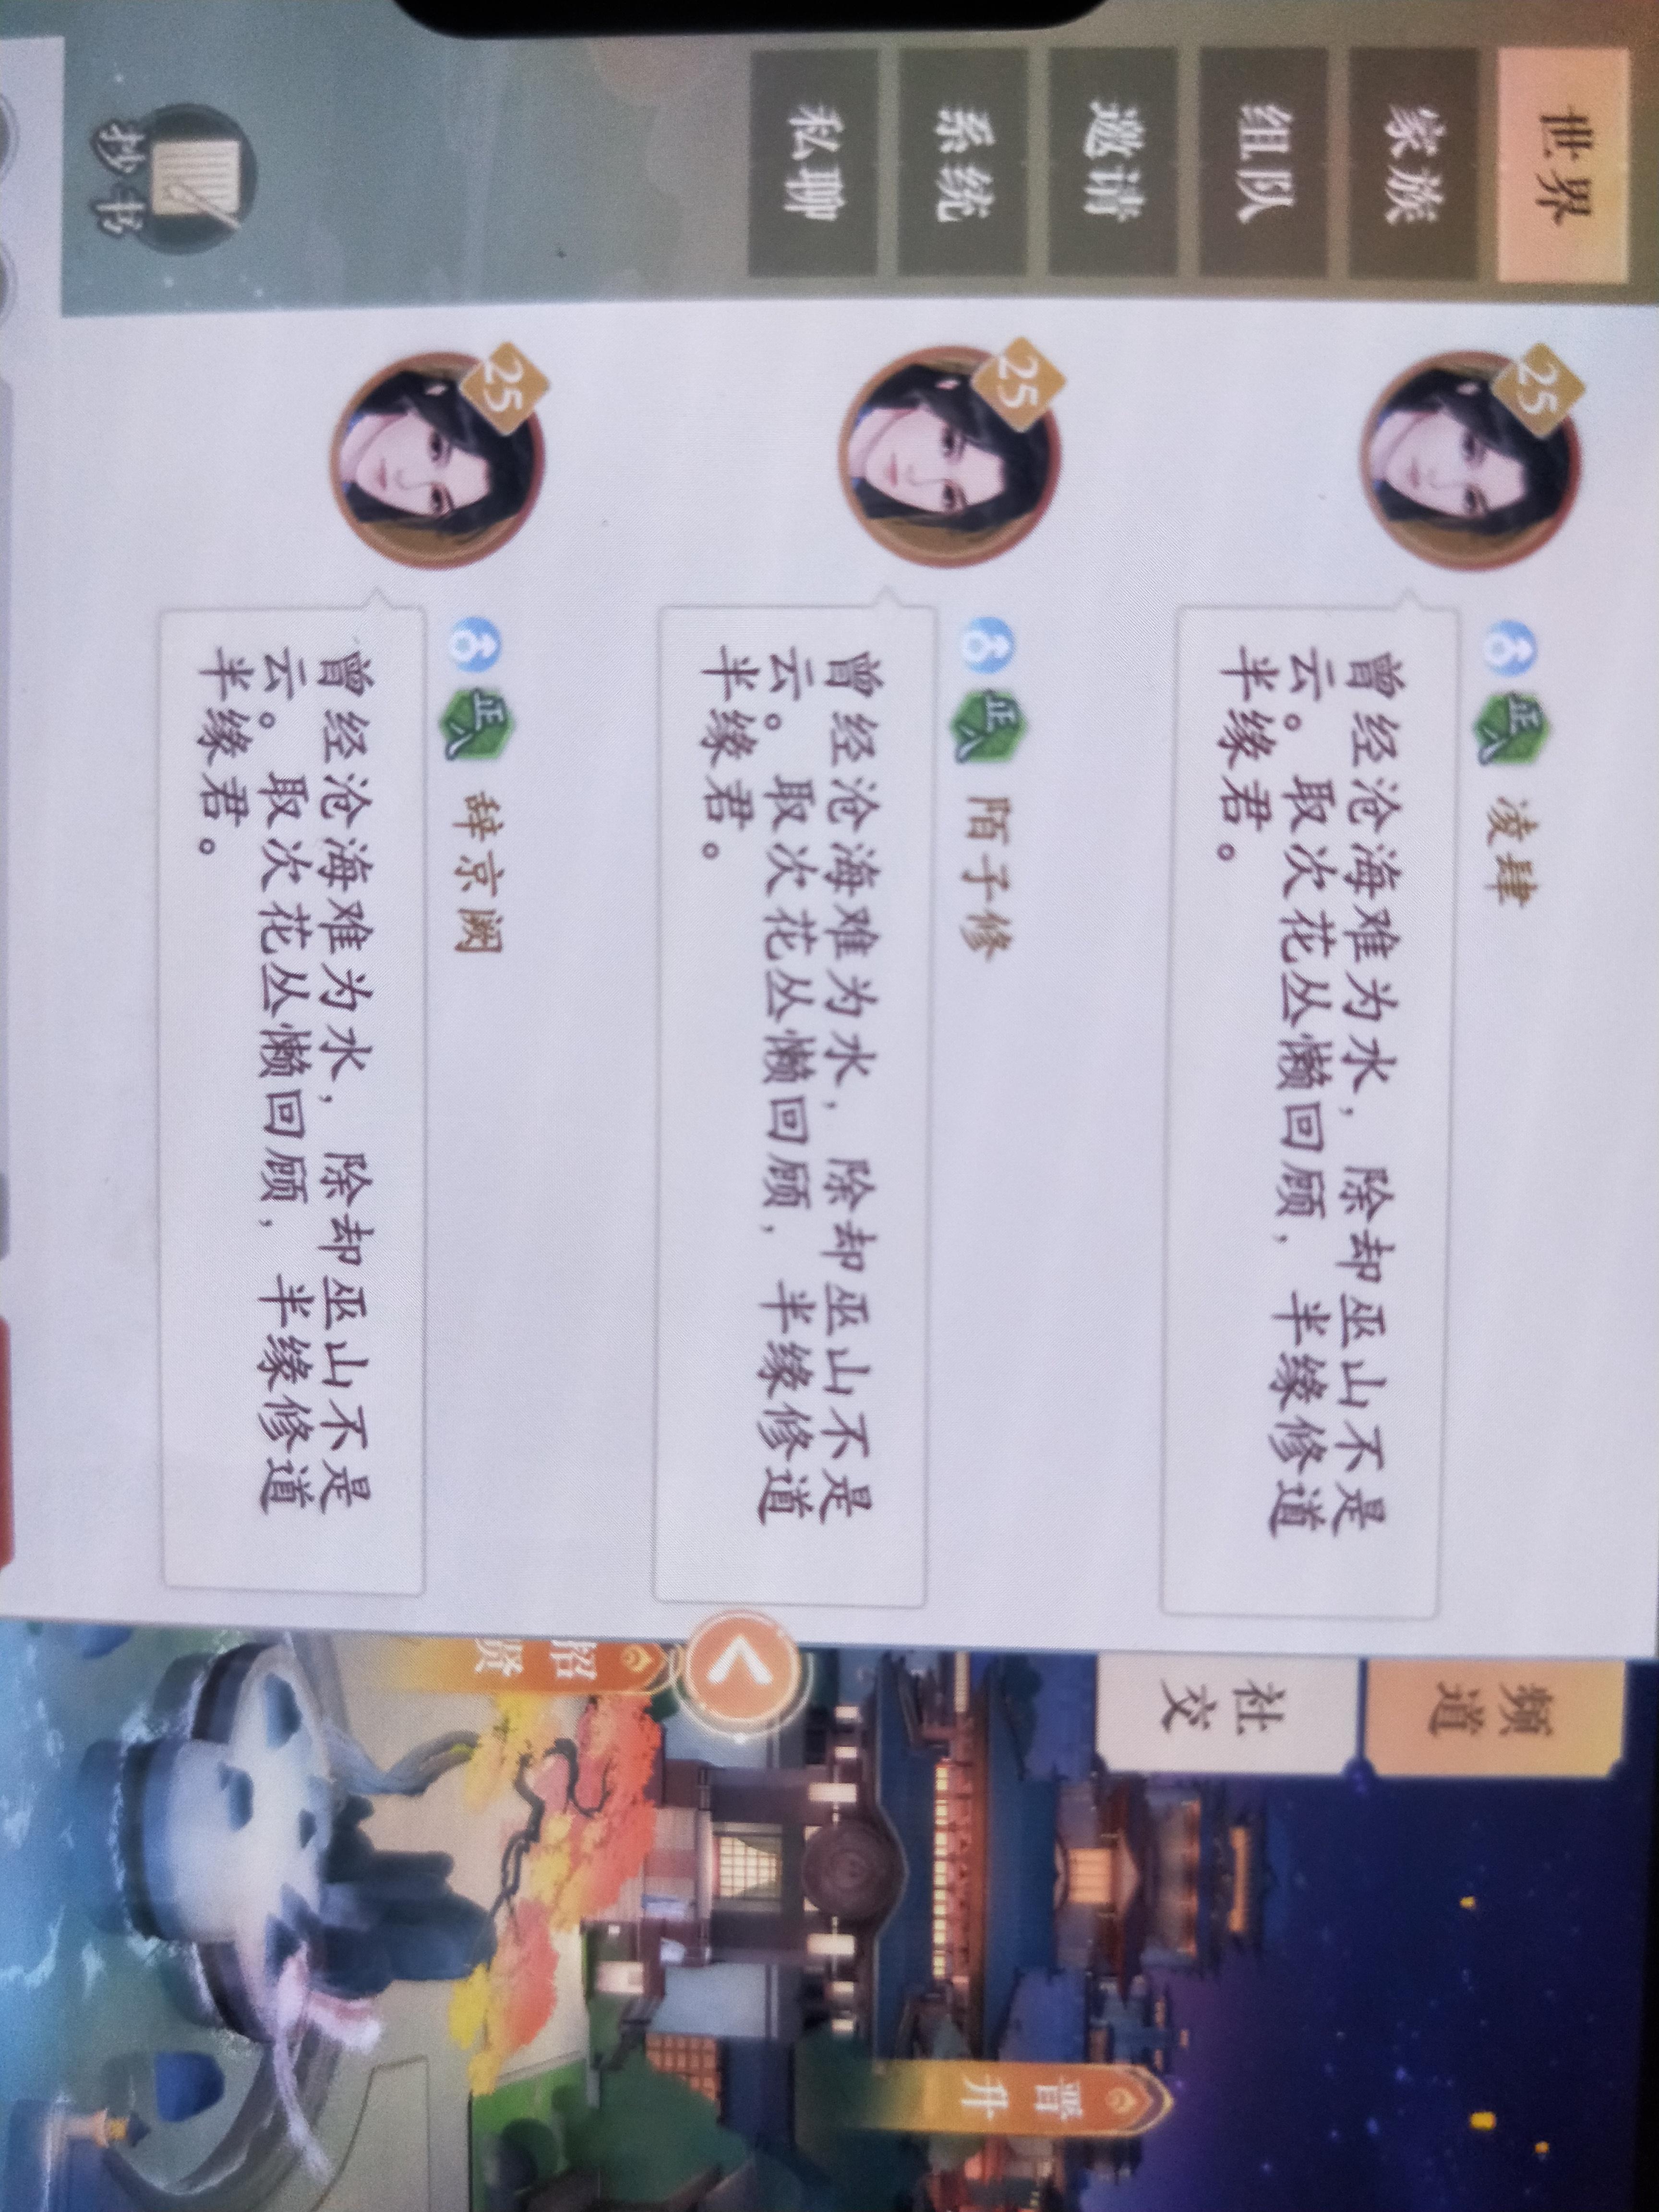 世界
家族
组队
邀请
系统
私聊
抄书
25
正八
凌肆
曾经沧海难为水，除却巫山不是
云。取次花丛懒回顾，半缘修道
半缘君。
25
正八
陌子修
曾经沧海难为水，除却巫山不是
云。取次花丛懒回顾，半缘修道
半缘君。
25
正八
辞京阙
曾经沧海难为水，除却巫山不是
云。取次花丛懒回顾，半缘修道
半缘君。
频道
社交
招贤
晋升